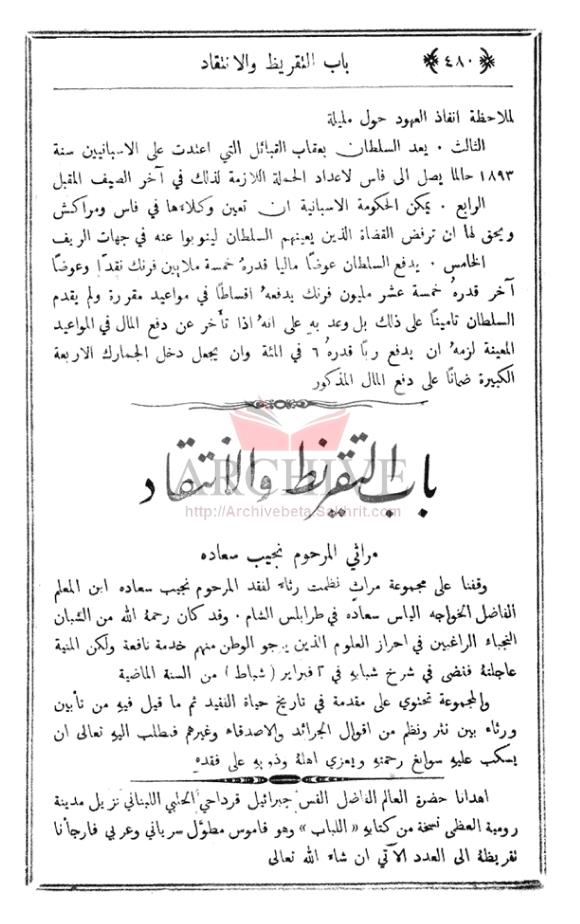 ﴿٤٨٠﴾ باب التقريظ والانتقاد
لملاحظة انفاذ العهود حول مليلة
الثالث ٠ يعد السلطان بعقاب القبائل التي اعتدت على الاسبانيين سنة
١٨٩٣ حالما يصل الى فاس لاعداد الحملة اللازمة لذلك في آخر الصيف المقبل
الرابع ٠ يمكن الحكومة الاسبانية ان تعين وكلاءها في فاس ومراكش
ويحق لها ان ترفض القضاة الذين يعينهم السلطان لينوبوا عنه في جهات الريف
الخامس ٠ يدفع السلطان عوضًا ماليا قدرهُ خمسة ملايين فرنك نقدًا وعوضًا
آخر قدرهُ خمسة عشر مليون فرنك يدفعهُ اقساطًا في مواعيد مقررة ولم يقدم
السلطان تامينًا على ذلك بل وعد بهِ على انهُ اذا تأخر عن دفع المال في المواعيد
المعينة لزمهُ ان يدفع ربًا قدرهُ ٦ في المئة وان يجعل دخل الجمارك الاربعة
الكبيرة ضمانًا على دفع المال المذكور
ARCHIVE
باب التقريظ والانتقاد
http://Archivebeta.Sakhrit.com
مراثي المرحوم نجيب سعاده
وقفنا على مجموعة مراثٍ نظمت رثاءً لفقد المرحوم نجيب سعاده ابن المعلم
الفاضل الخواجه الياس سعاده في طرابلس الشام ٠ وقد كان رحمهُ الله من الشبان
النجباء الراغبين في احراز العلوم الذين يرجو الوطن منهم خدمة نافعة ولكن المنية
عاجلتهُ فقضى في شرخ شبابهِ في ٢ فبراير (شباط) من السنة الماضية
والمجموعة تحتوي على مقدمة في تاريخ حياة الفقيد ثم ما قيل فيهِ من تأبين
ورثاء بين نثر ونظم من اقوال الجرائد والاصدقاء وغيرهم فنطلب اليهِ تعالى ان
يسكب عليهِ سوابغ رحمتهِ ويعزي اهلهُ وذويهِ على فقدهِ
اهدانا حضرة العالم الفاضل القس جبرائيل قرداحي الحلبي اللبناني نزيل مدينة
رومية العظمى نسخة من كتابهِ «اللباب» وهو قاموس مطوَّل سرياني وعربي فارجأنا
تقريظهُ الى العدد الآتي ان شاء الله تعالى